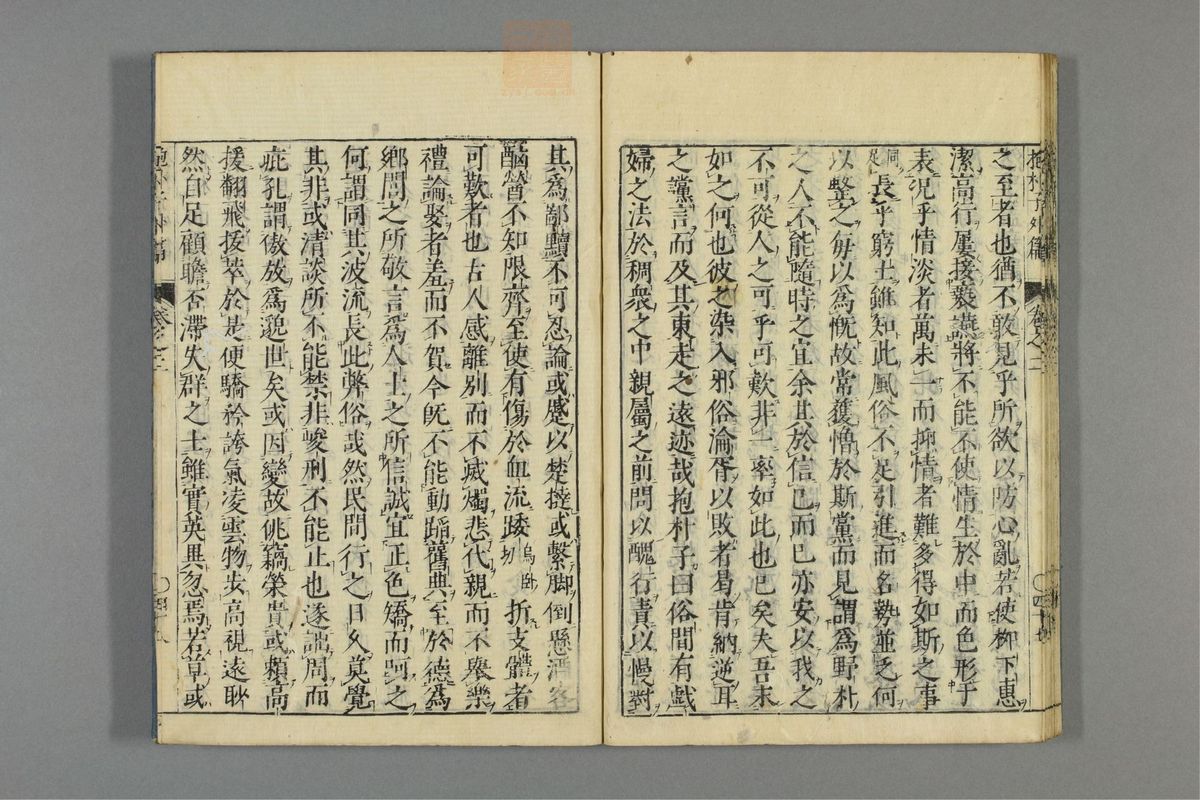 抱朴子外篇 卷之二 ○四十七
之至者也猶不敢見乎所欲以防心亂若使柳下惠
潔高行屢接褻讌將不能不使情生於中而色形于
表况乎情淡者萬未一而抑情者難多得如斯之事
何足長乎窮士雖知此風俗不足引進而名勢並乏何
以整之每以為慨故常獲憎於斯黨而見謂為野朴
之人不能隨時之宜余其於信已而已亦安以我之
不可從人之可乎可歎非一率如此也已矣夫吾末
如之何也彼之染入邪俗淪胥以敗者曷肯納逆耳
之讜言而及其東走之遠迹哉抱朴子曰俗間有戲
婦之法於稠衆之中親屬之前問以醜行責以慢對
其為鄙黷不可忍論或蹙以楚撻或繫脚倒懸酒客
酗醟不知限齊至使有傷於血流踒烏臥切折支體者
可歎者也古人感離別而不滅燭悲代親而不舉樂
禮論娶者羞而不賀今旣不能動蹈舊典至於德為
鄉閭之所敬言為人士之所信誠宜正色矯而呵之
何謂同其波流長此弊俗哉然民間行之日久莫覺
其非或清談所不能禁非峻刑不能止也遂謂周而
疵孔謂傲放為邈世矣或因變故佻竊榮貴或賴高
援翻飛拔萃於是便驕矜誇氣凌雲物步高視遠眇
然自足顧瞻否滯失群之士雖實英異忽焉若草或
抱朴子外篇 卷之二 ○四十八